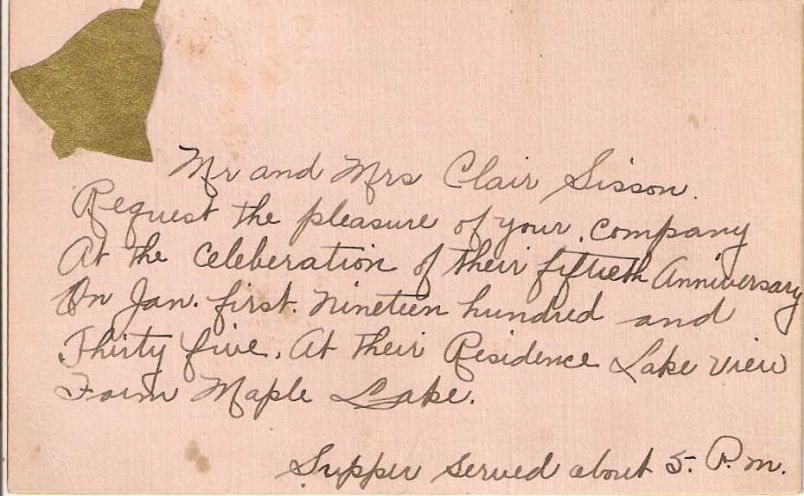 Mr and Mrs Clair Sisson.
Request the pleasure of your company
At the celeberation of their fiftieth Anniversary
On Jan. first. nineteen hundred and
Thirty five. At their Residence Lake View
Farm Maple Lake.
Supper served about 5. P.m.